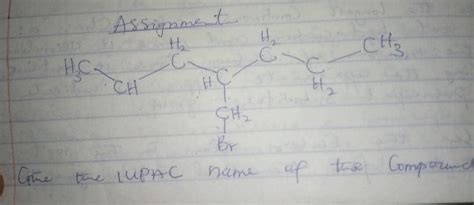 Assignment
H₂ H₂ CH₃
H₃C C C
CH H C C
H₂
CH₂
Br
Give the IUPAC name of the Compound